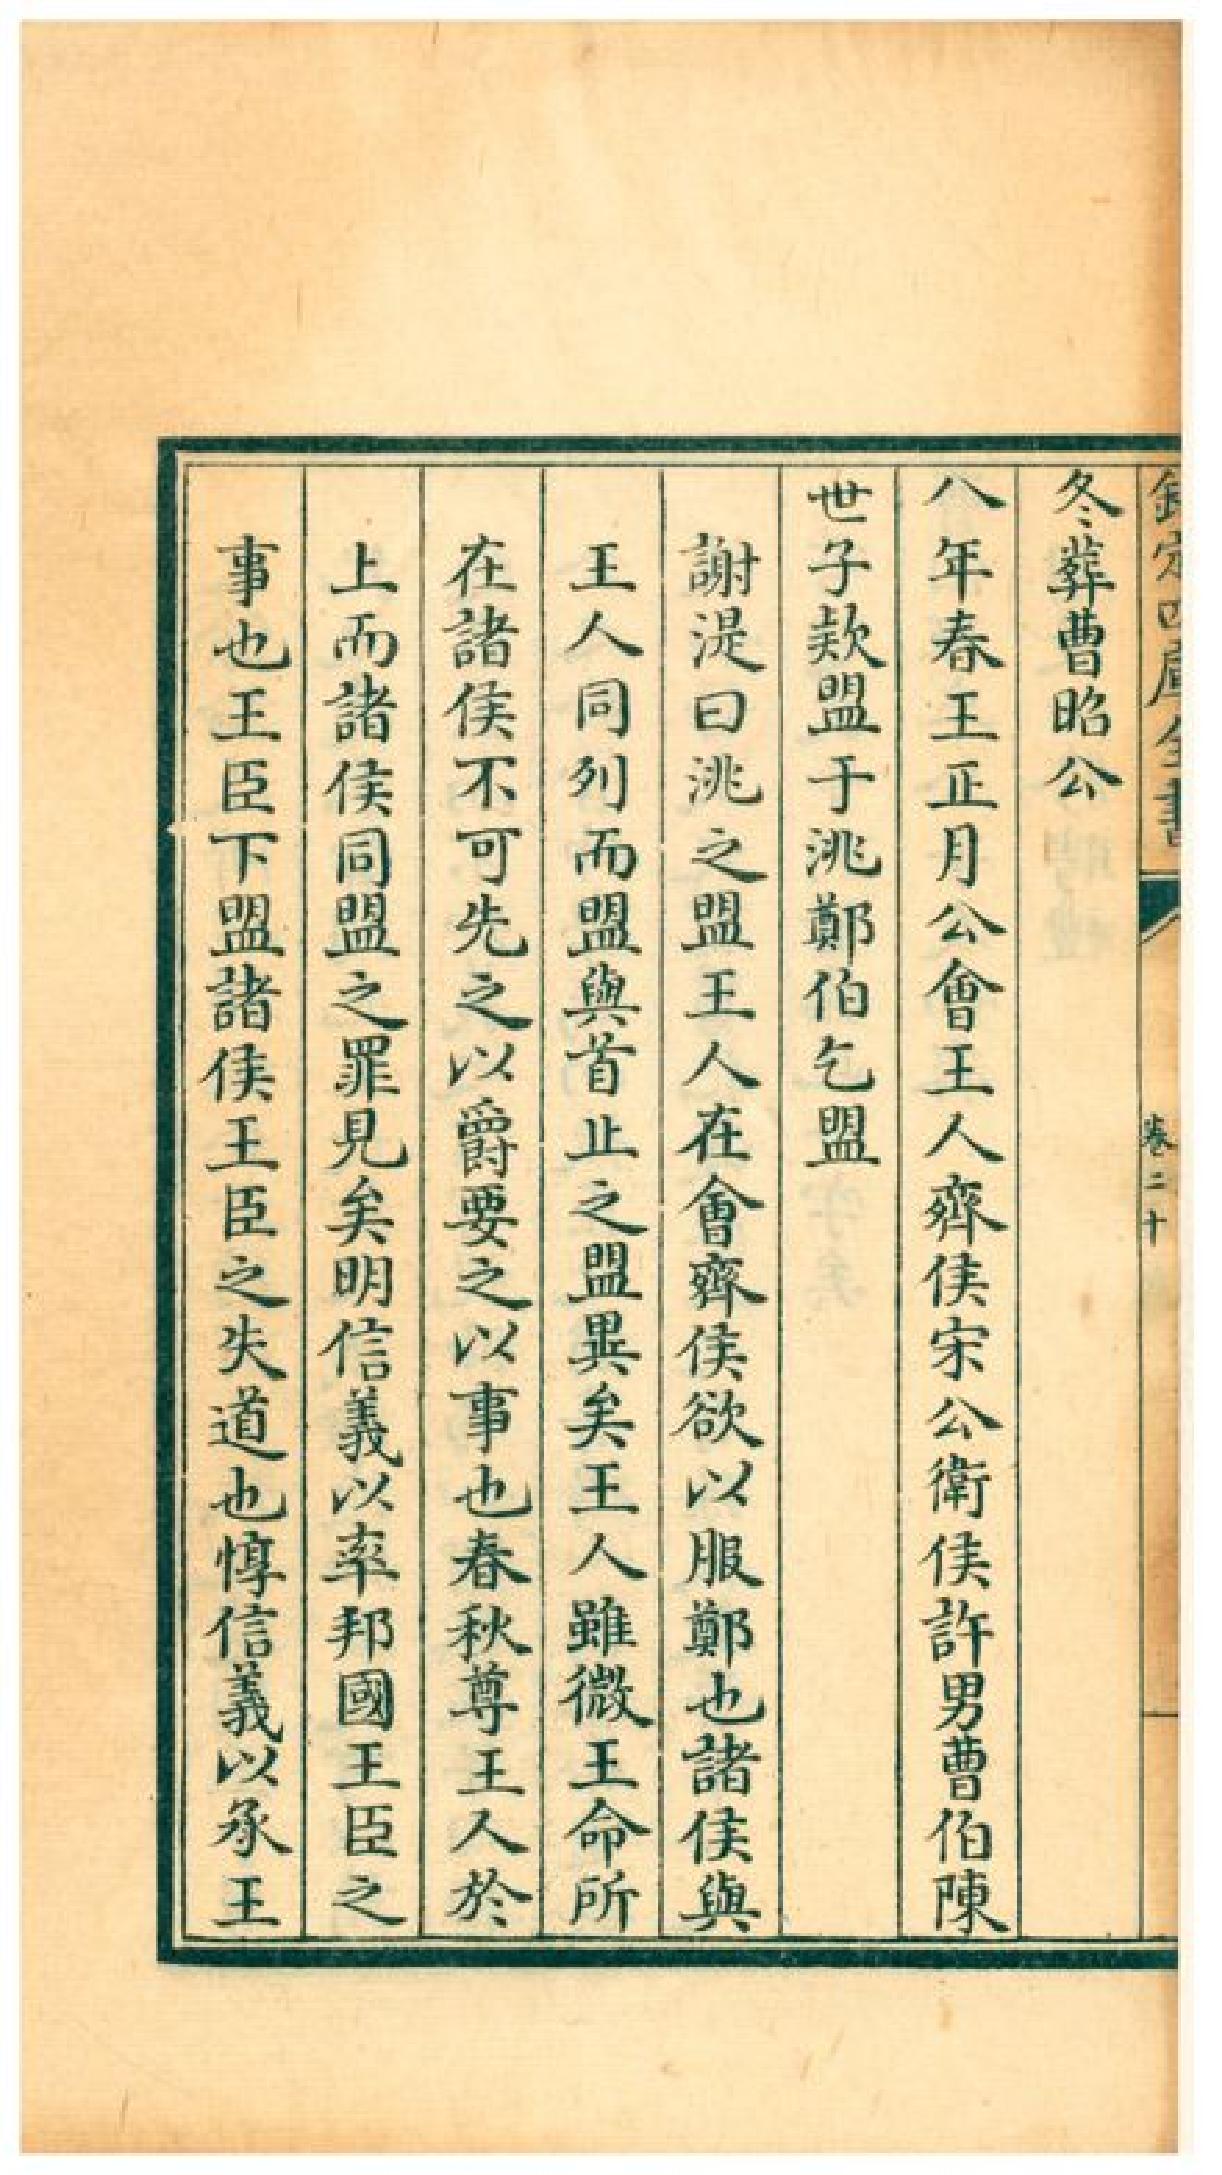 欽定四庫全書
卷二十
冬葬曹昭公
八年春王正月公會王人齊侯宋公衛侯許男曹伯陳
世子欵盟于洮鄭伯乞盟
謝湜曰洮之盟王人在會齊侯欲以服鄭也諸侯與
王人同列而盟與首止之盟異矣王人雖微王命所
在諸侯不可先之以爵要之以事也春秋尊王人於
上而諸侯同盟之罪見矣明信義以率邦國王臣之
事也王臣下盟諸侯王臣之失道也惇信義以承王